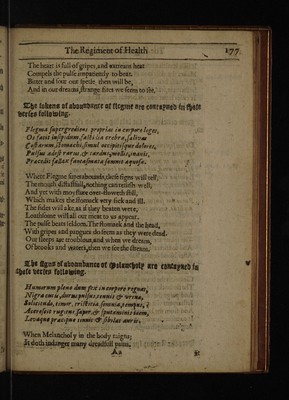 The Regiment of Health 177
The heart is full of gripes, and extream heat
Compels the pulse impatiently to beat.
Bitter and sour our spetle then will be,
And in our dreams, strange fires we seem to see.
The tokens of aboundance of flegme are contayned in these
verses following.
Flegma supergrediens proprias in corpore leges,
Os facit insipidum, fastidia crebra, salivas
Costarum, stomachi, simul occipitisque dolores,
Pulsus adest rarus, & tardus, mollis, inanis,
Præcedit fallax fantasmata somnus aquosa.
Where Flegme superabounds, these signs will tell,
The mouth distastfull, nothing can rellish well,
And yet with moysture over-floweth still,
Which makes the stomack very sick and ill.
The sides will ake, as if they beaten were,
Loathsome will all our meat to us appear.
The pulse beats seldom, The stomack and the head,
With gripes and pangues do seem as they were dead.
Our sleeps are troublous, and when we dream,
Of brooks and waters, then we see the stream.
The signs of aboundance of Melancholy are contayned in
these verses following.
Humorum pleno dum fex in corpore regnat,
Nigra cutis, durus pulsus, tenuis & urina,
Solicitudo, timor, tristitia, somnia,
Accrescit rugitus sapor, & sputaminis idem,
Levaque præcipue tinnit & sibilat auris.
When Melancholy in the body raigns,
It doth indanger many dreadfull pains,
Aa